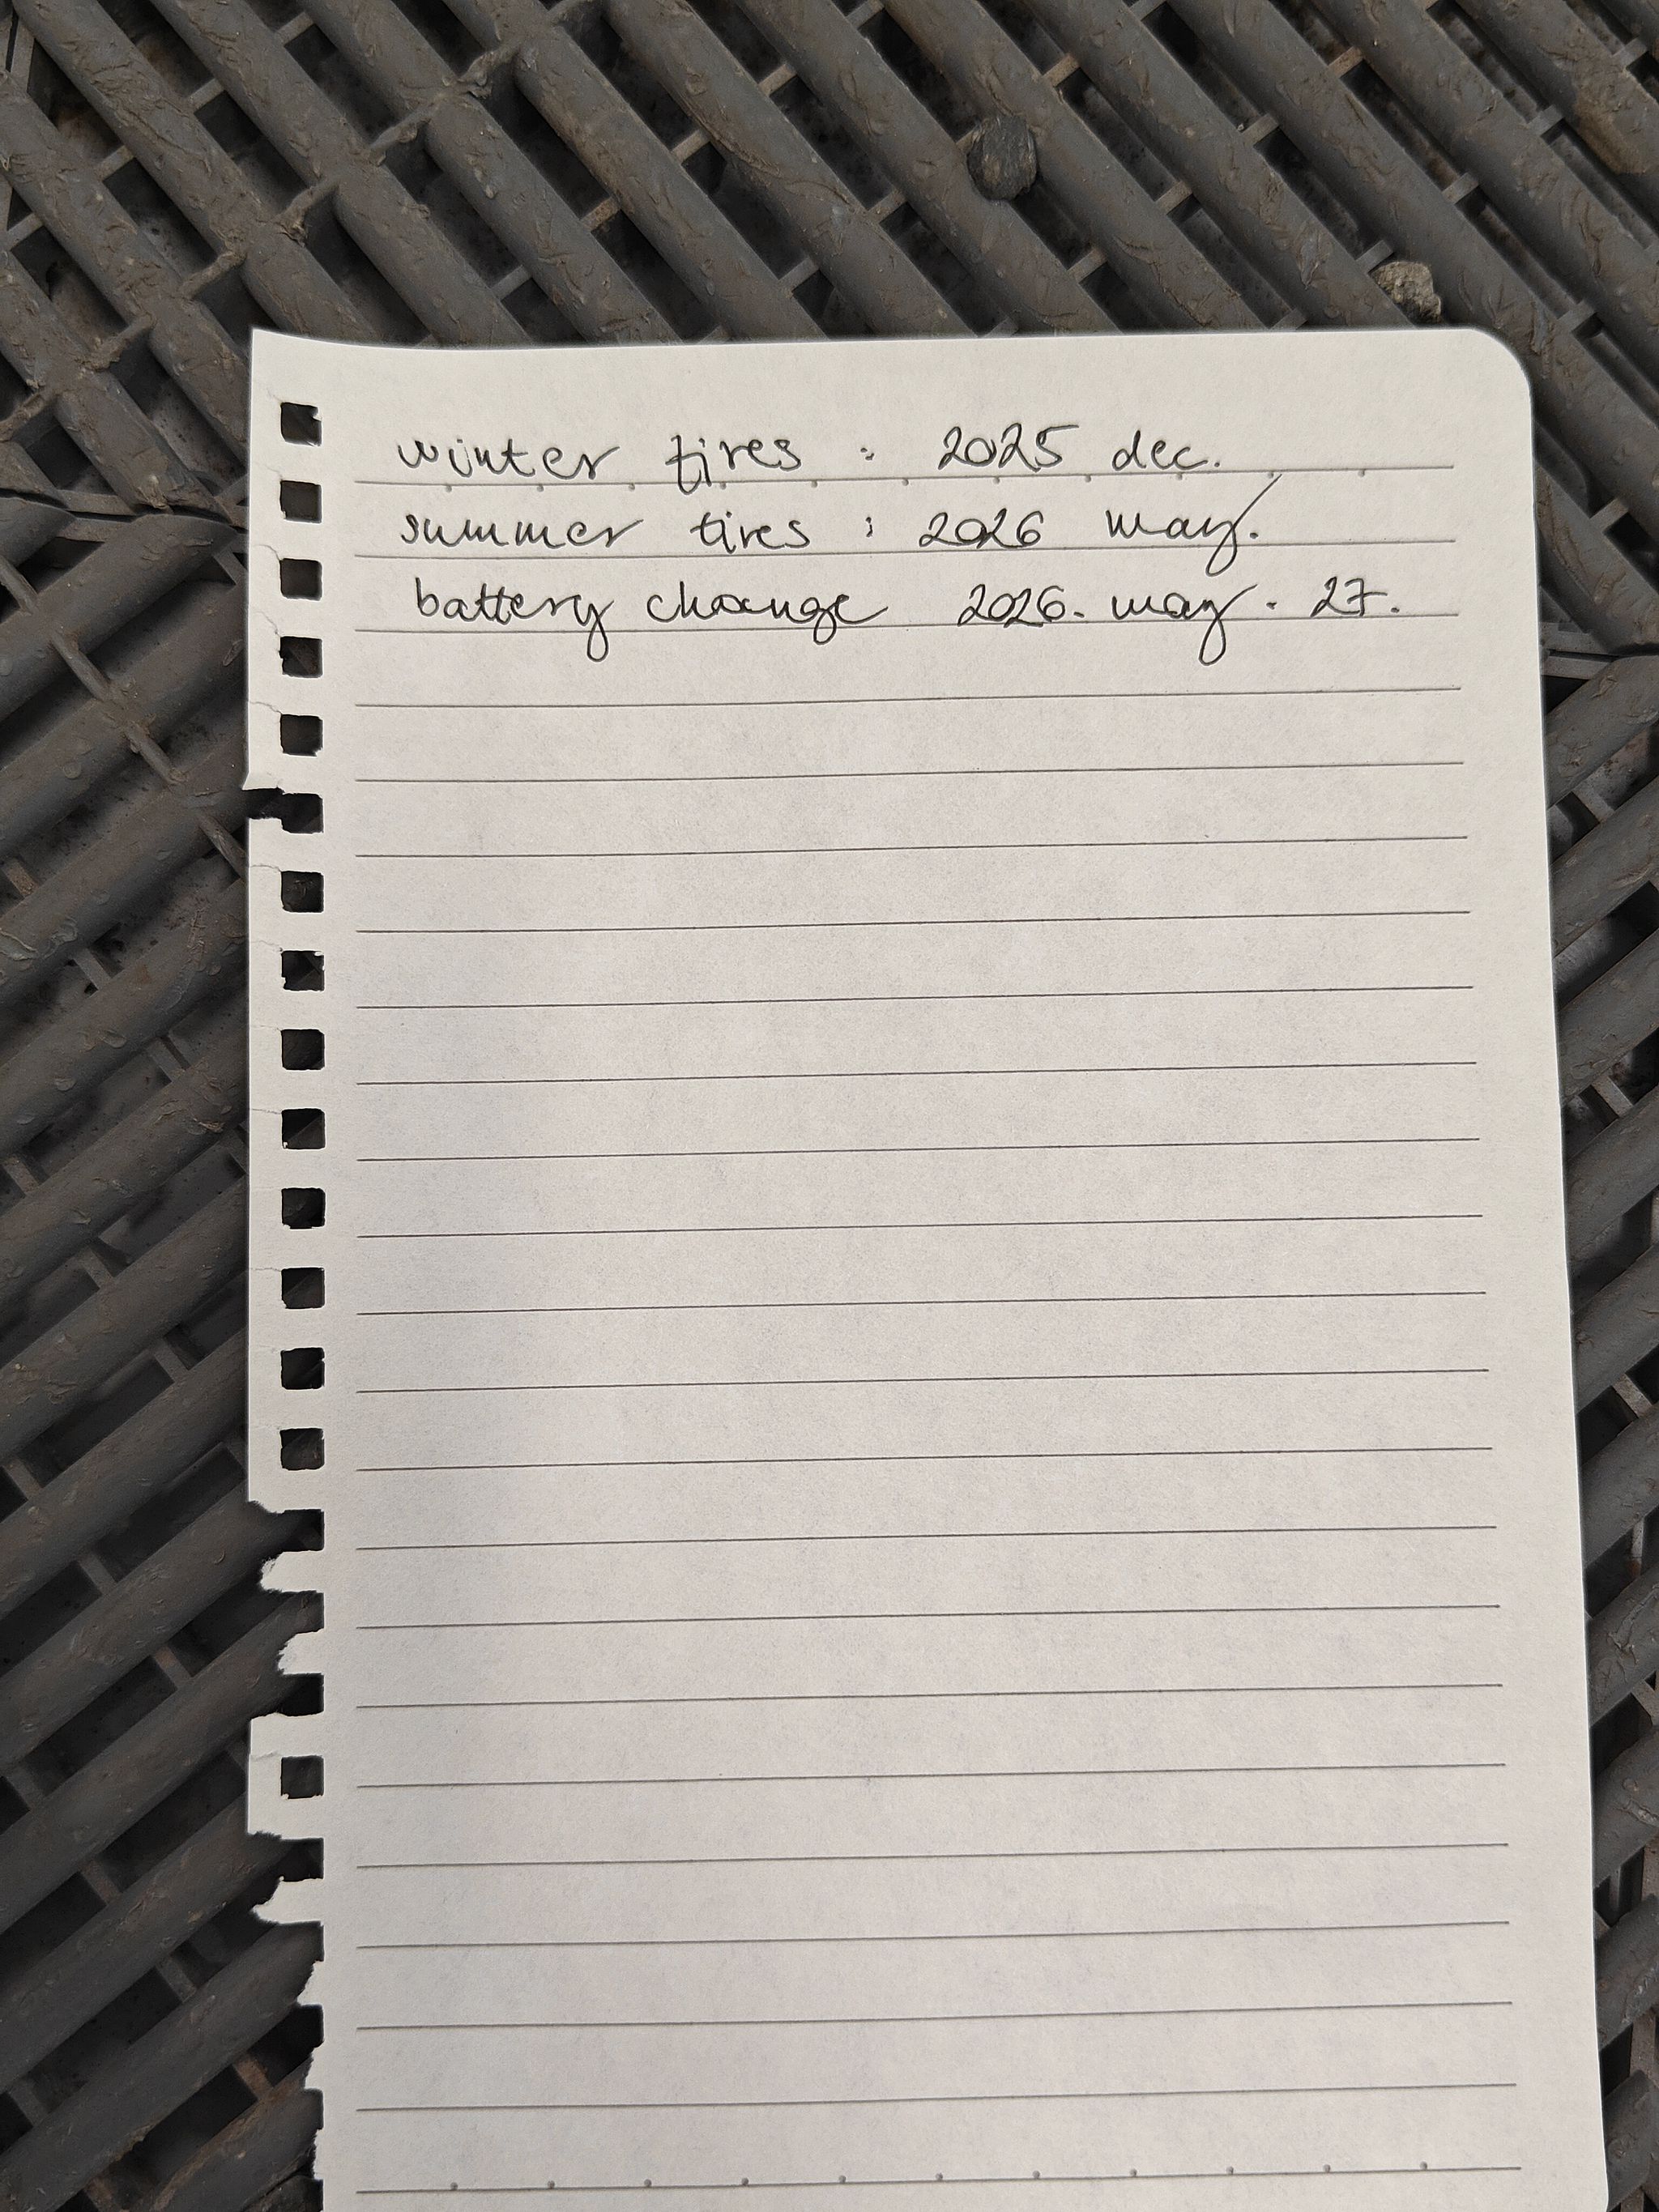 winter tires : 2025 dec.
summer tires : 2026 may.
battery change 2026. may. 27.